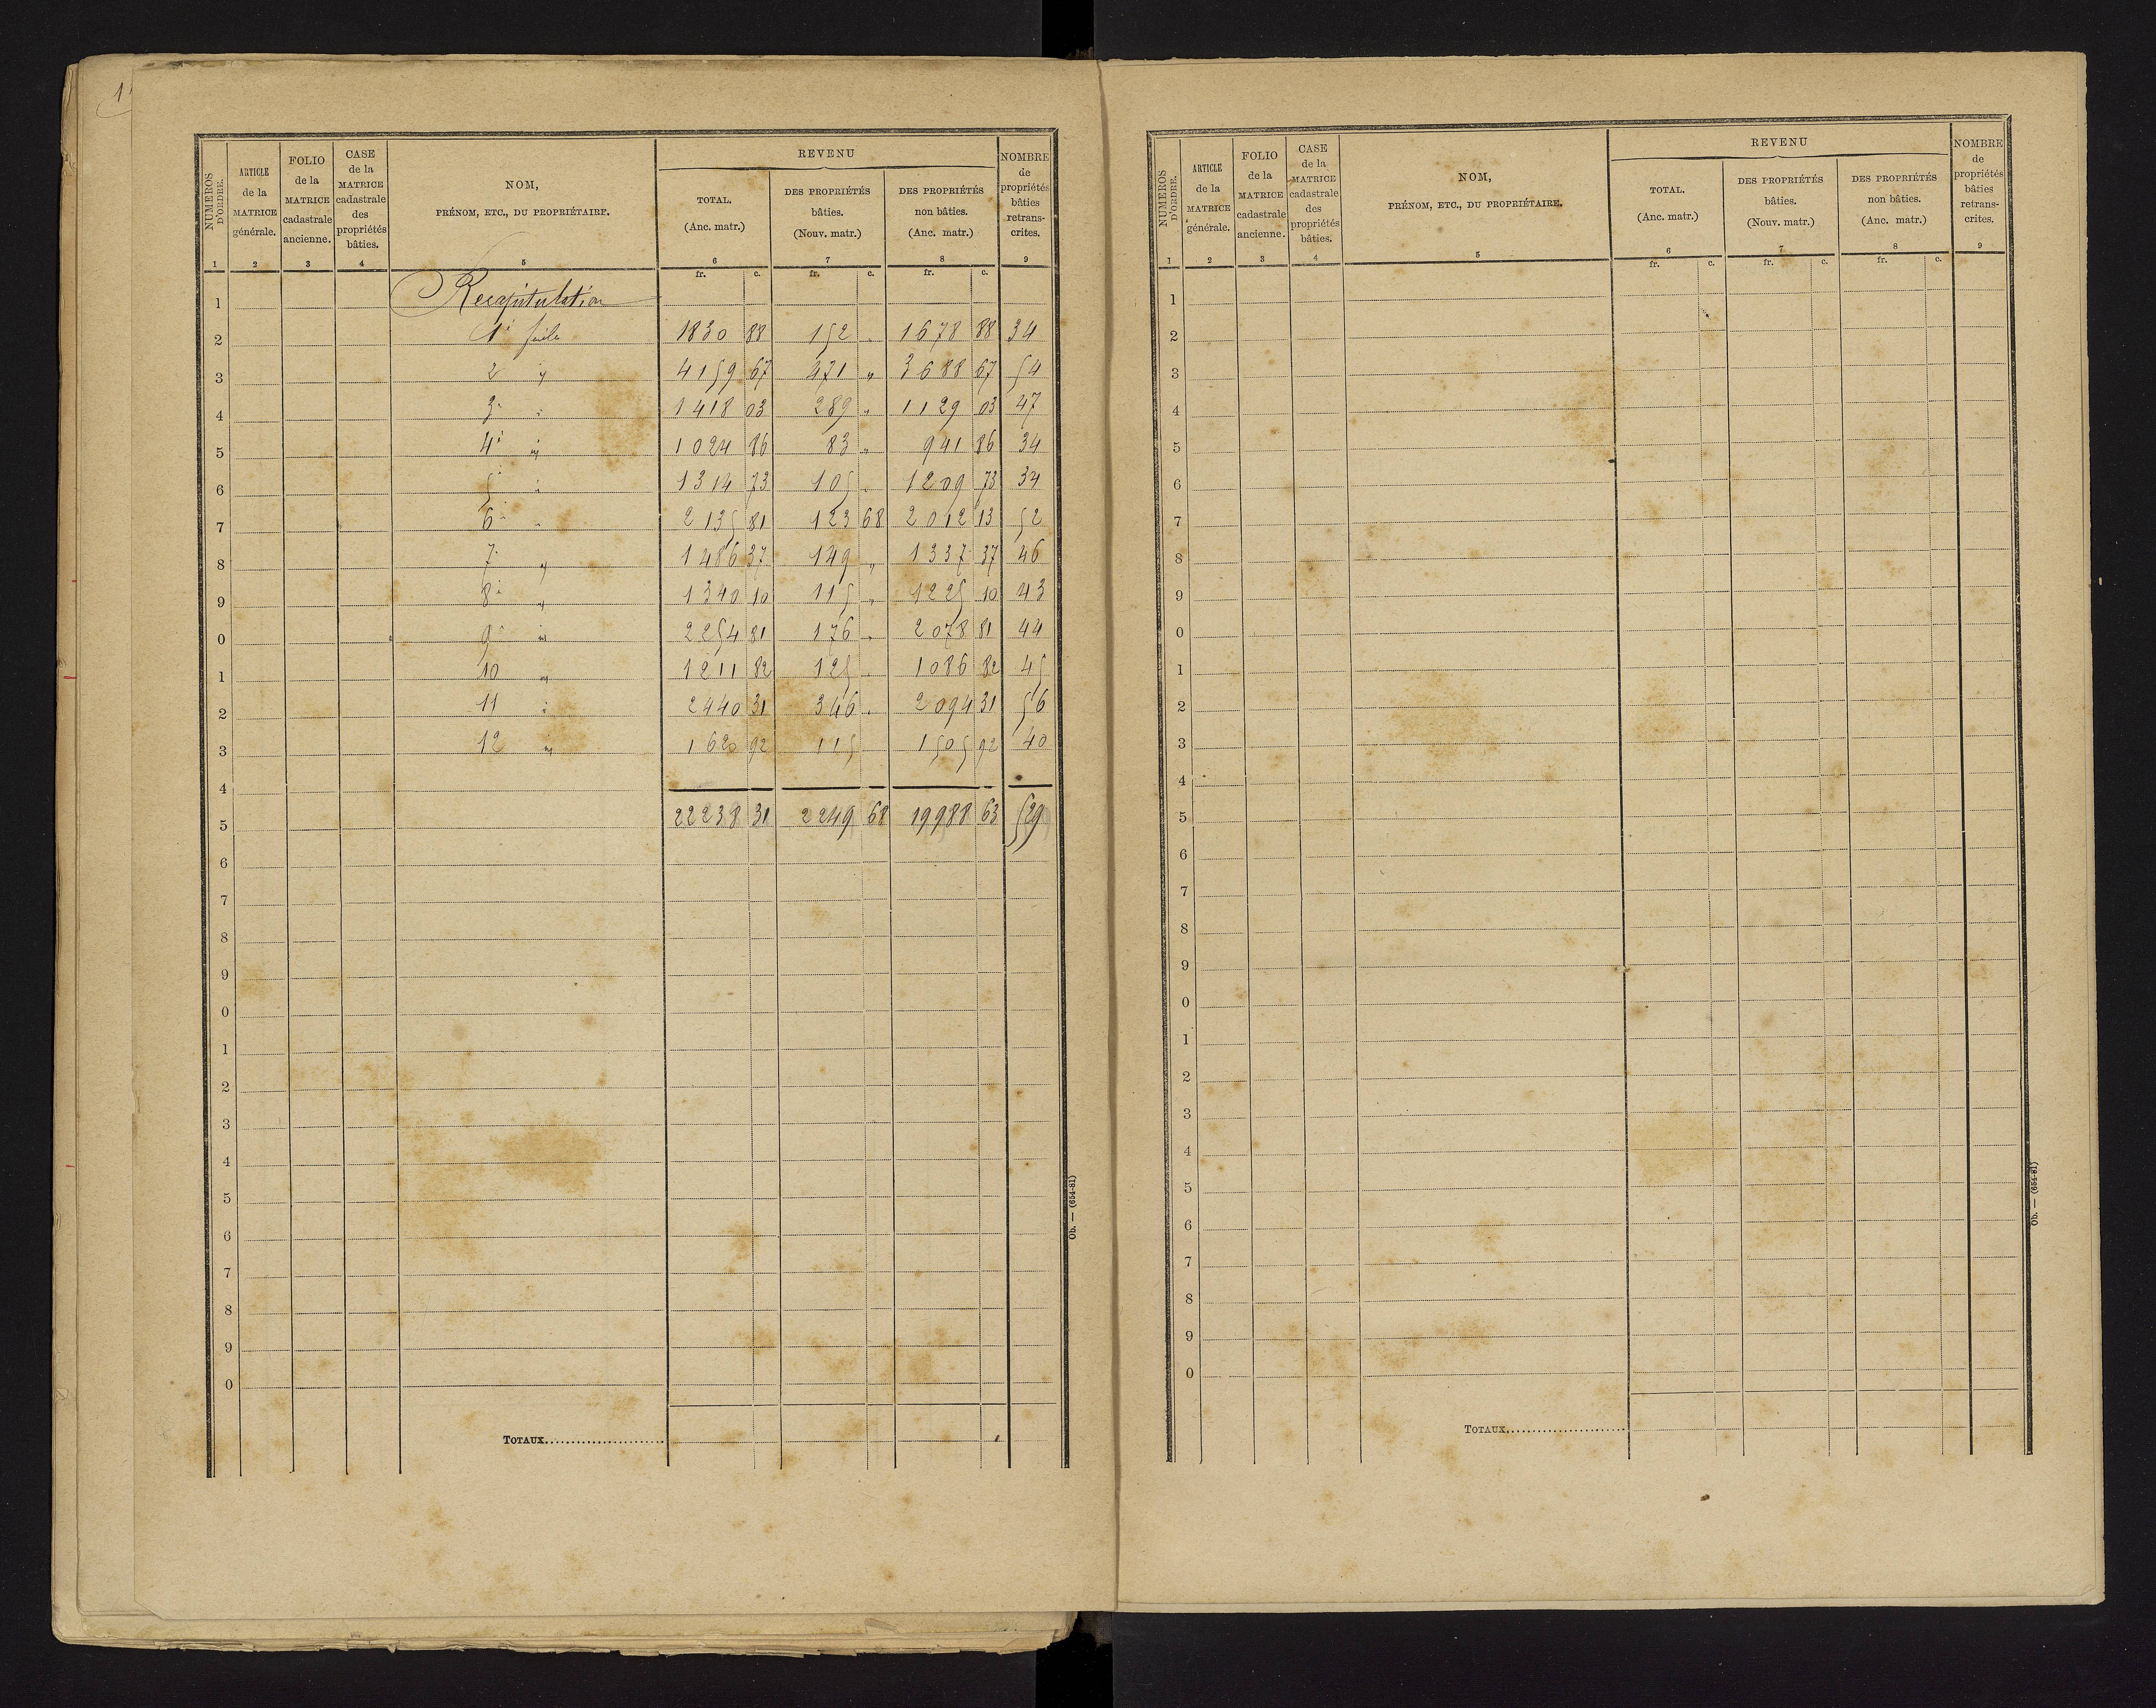 NUMÉROS D'ORDRE.
ARTICLE de la MATRICE générale.
FOLIO de la MATRICE cadastrale ancienne.
CASE de la MATRICE cadastrale des propriétés bâties.
NOM, PRÉNOM, ETC., DU PROPRIÉTAIRE.
REVENU
TOTAL. (Anc. matr.)
DES PROPRIÉTÉS bâties. (Nouv. matr.)
DES PROPRIÉTÉS non bâties. (Anc. matr.)
NOMBRE de propriétés bâties retrans- crites.
1 2 3 4 5 6 7 8 9
fr. c. fr. c. fr. c.
1 Recapitulation
2 1830 88 152 " 1678 88 34
3 2 " 4159 67 471 " 3688 67 54
4 3 " 1418 03 289 " 1129 03 47
5 4 " 1024 86 83 " 941 86 34
6 5 " 1314 73 105 " 1209 73 34
7 6 " 2135 81 123 68 2012 13 52
8 7 " 1486 37 149 " 1337 37 46
9 8 " 1340 10 115 " 1225 10 43
0 9 " 2254 81 176 " 2078 81 44
1 10 " 1211 82 125 " 1086 82 45
2 11 " 2440 31 346 " 2094 31 56
3 12 " 1620 92 115 1505 92 40
4
5 22238 31 2249 68 19988 63 529
6
7
8
9
0
1
2
3
4
5
6
7
8
9
0
TOTAUX
Ob. — (654-81)
NUMÉROS D'ORDRE.
ARTICLE de la MATRICE générale.
FOLIO de la MATRICE cadastrale ancienne.
CASE de la MATRICE cadastrale des propriétés bâties.
NOM, PRÉNOM, ETC., DU PROPRIÉTAIRE.
REVENU
TOTAL. (Anc. matr.)
DES PROPRIÉTÉS bâties. (Nouv. matr.)
DES PROPRIÉTÉS non bâties. (Anc. matr.)
NOMBRE de propriétés bâties retrans- crites.
1 2 3 4 5 6 7 8 9
fr. c. fr. c. fr. c.
1
2
3
4
5
6
7
8
9
0
1
2
3
4
5
6
7
8
9
0
1
2
3
4
5
6
7
8
9
0
TOTAUX
Ob. — (654-81)